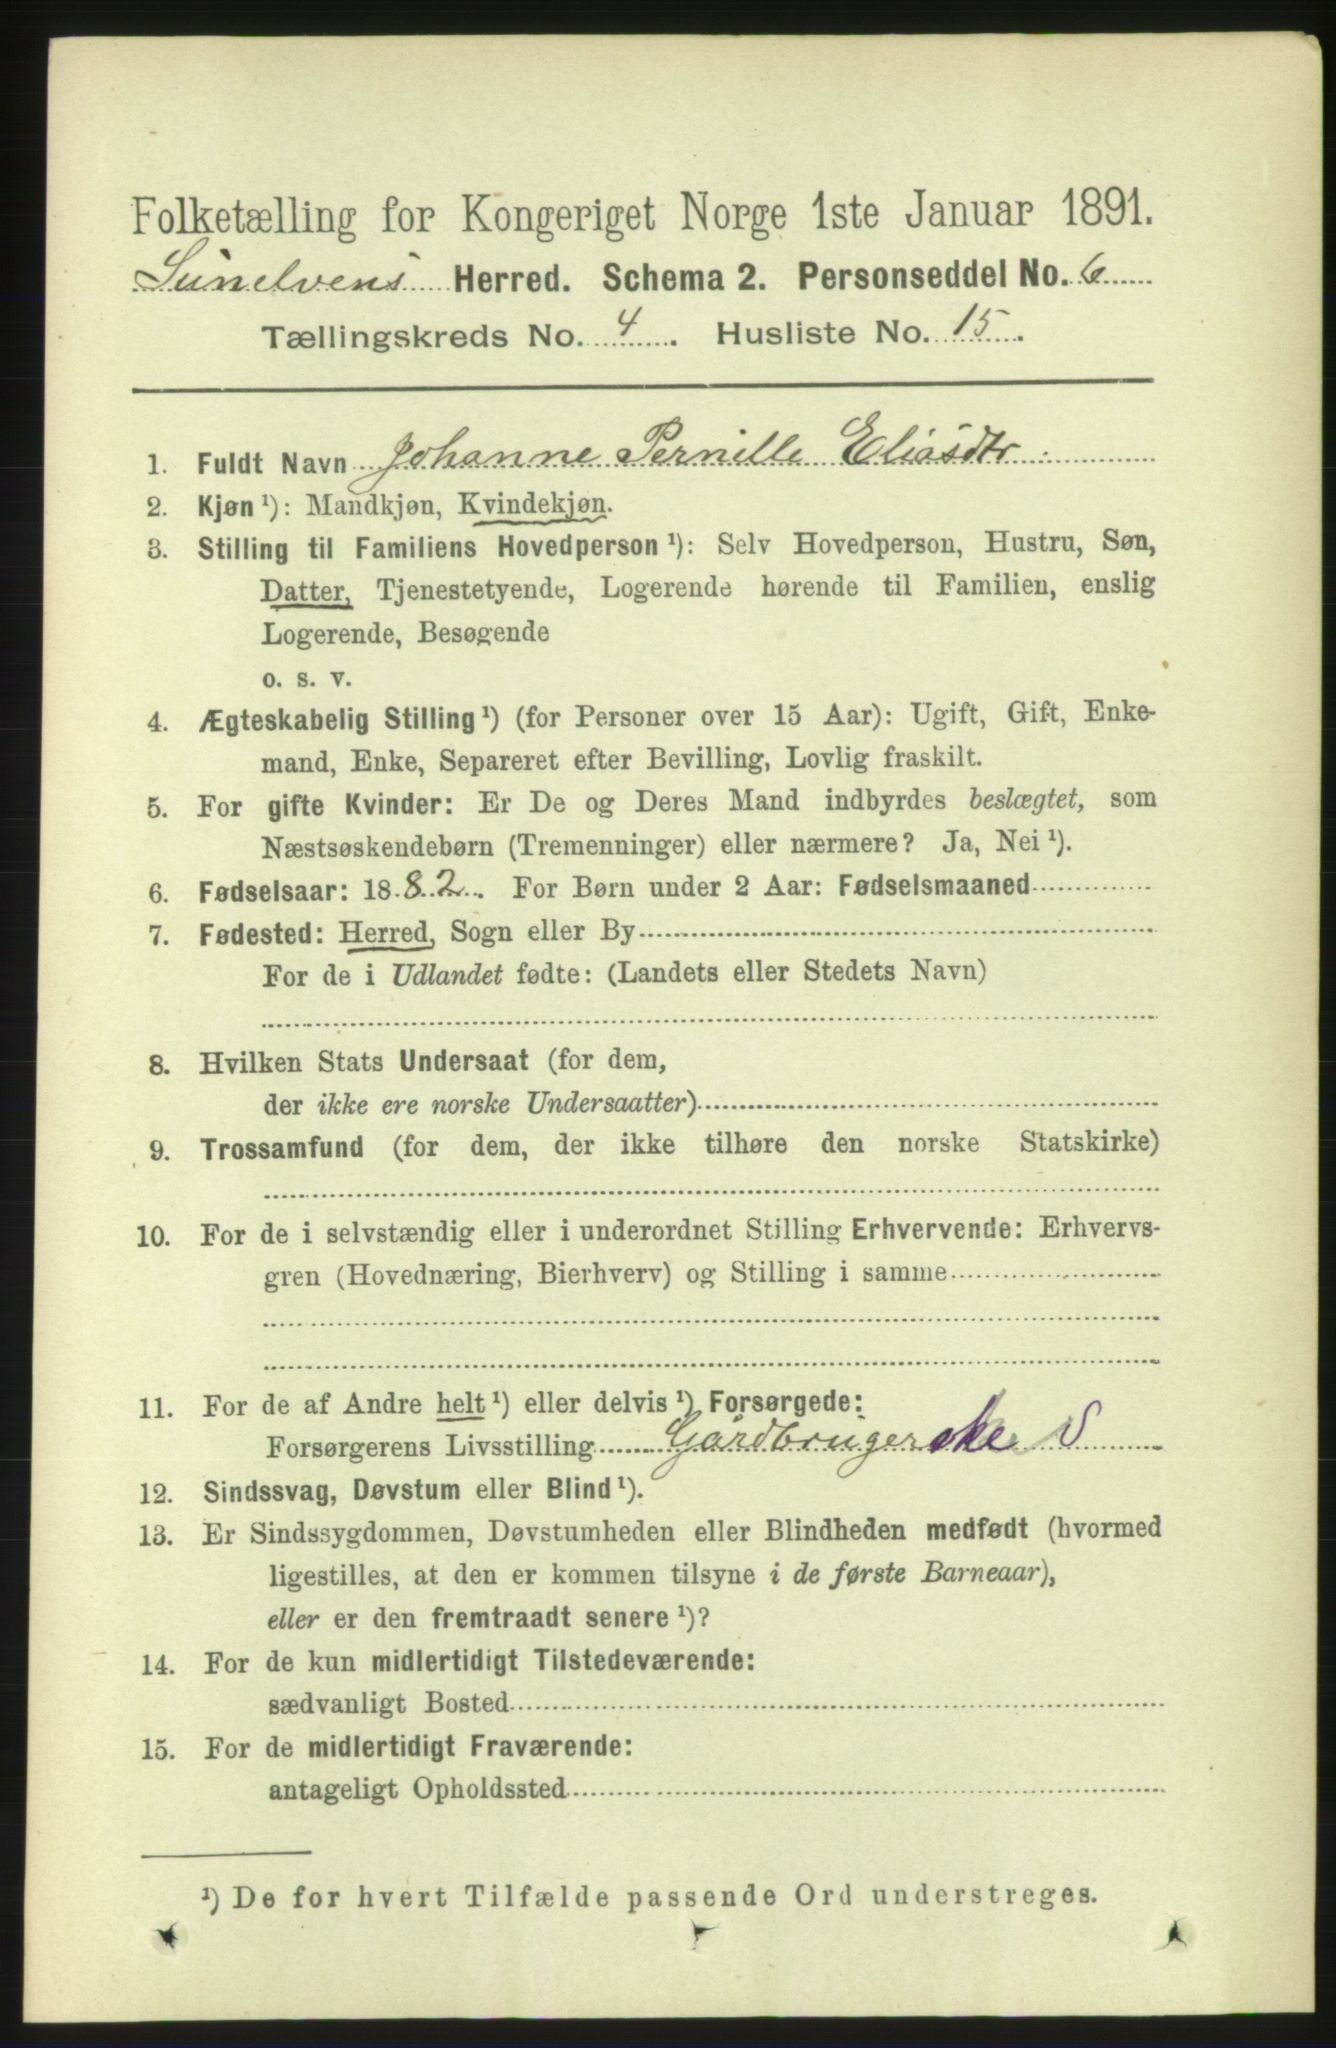 Folketælling for Kongeriget Norge 1ste Januar 1891.
Sunelvens Herred. Schema 2. Personseddel No. 6
Tællingskreds No. 4. Husliste No. 15.
1. Fuldt Navn Johanne Pernille Eliasdtr.
2. Kjøn ¹): Mandkjøn, Kvindekjøn.
3. Stilling til Familiens Hovedperson ¹): Selv Hovedperson, Hustru, Søn,
Datter, Tjenestetyende, Logerende hørende til Familien, enslig
Logerende, Besøgende
o. s. v.
4. Ægteskabelig Stilling ¹) (for Personer over 15 Aar): Ugift, Gift, Enke-
mand, Enke, Separeret efter Bevilling, Lovlig fraskilt.
5. For gifte Kvinder: Er De og Deres Mand indbyrdes beslægtet, som
Næstsøskendebørn (Tremenninger) eller nærmere? Ja, Nei ¹).
6. Fødselsaar: 1882. For Børn under 2 Aar: Fødselsmaaned
7. Fødested: Herred, Sogn eller By
For de i Udlandet fødte: (Landets eller Stedets Navn)
8. Hvilken Stats Undersaat (for dem,
der ikke ere norske Undersaatter)
9. Trossamfund (for dem, der ikke tilhøre den norske Statskirke)
10. For de i selvstændig eller i underordnet Stilling Erhvervende: Erhvervs-
gren (Hovednæring, Bierhverv) og Stilling i samme
11. For de af Andre helt ¹) eller delvis ¹) Forsørgede:
Forsørgerens Livsstilling Gårdbrugerske S
12. Sindssvag, Døvstum eller Blind ¹).
13. Er Sindssygdommen, Døvstumheden eller Blindheden medfødt (hvormed
ligestilles, at den er kommen tilsyne i de første Barneaar),
eller er den fremtraadt senere ¹)?
14. For de kun midlertidigt Tilstedeværende:
sædvanligt Bosted
15. For de midlertidigt Fraværende:
antageligt Opholdssted
¹) De for hvert Tilfælde passende Ord understreges.